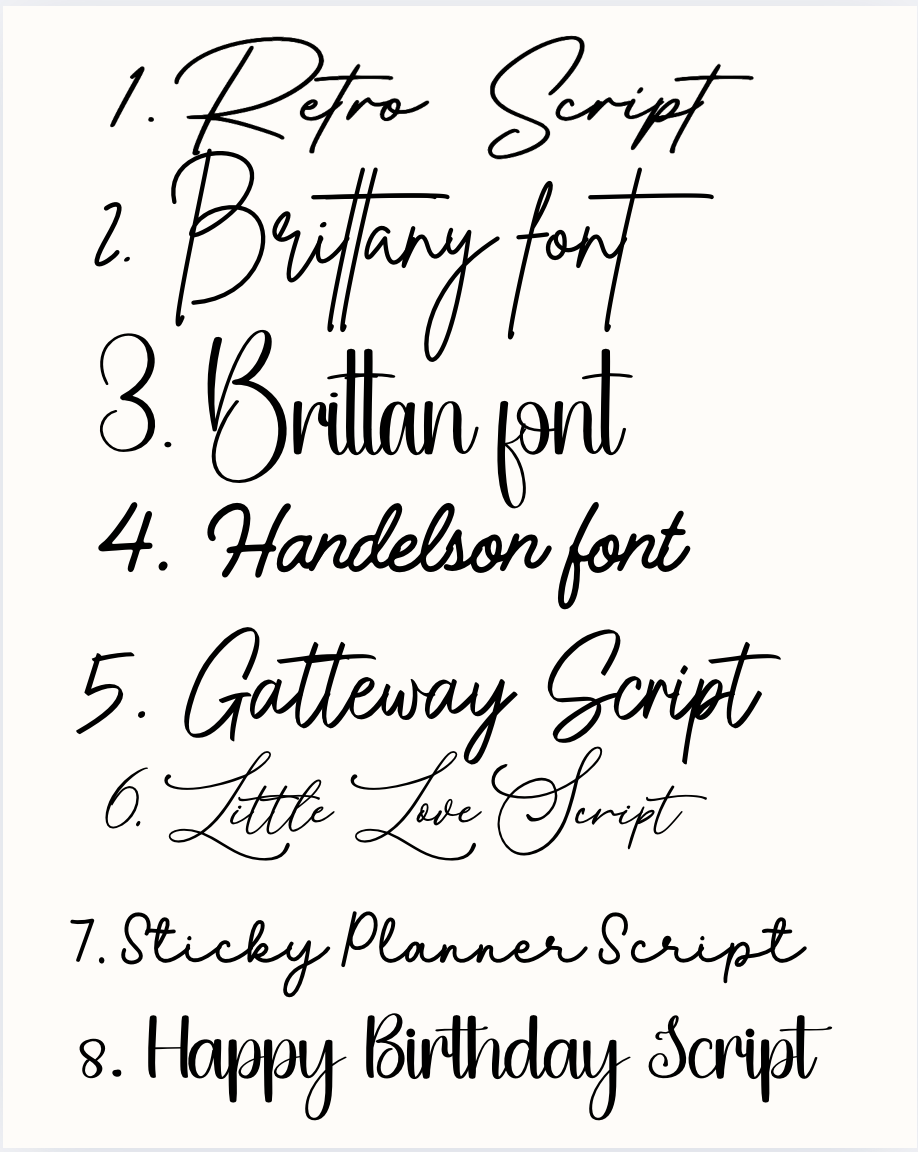 1. Retro Script
2. Brittany font
3. Brittan font
4. Handelson font
5. Gatteway Script
6. Little Love Script
7. Sticky Planner Script
8. Happy Birthday Script